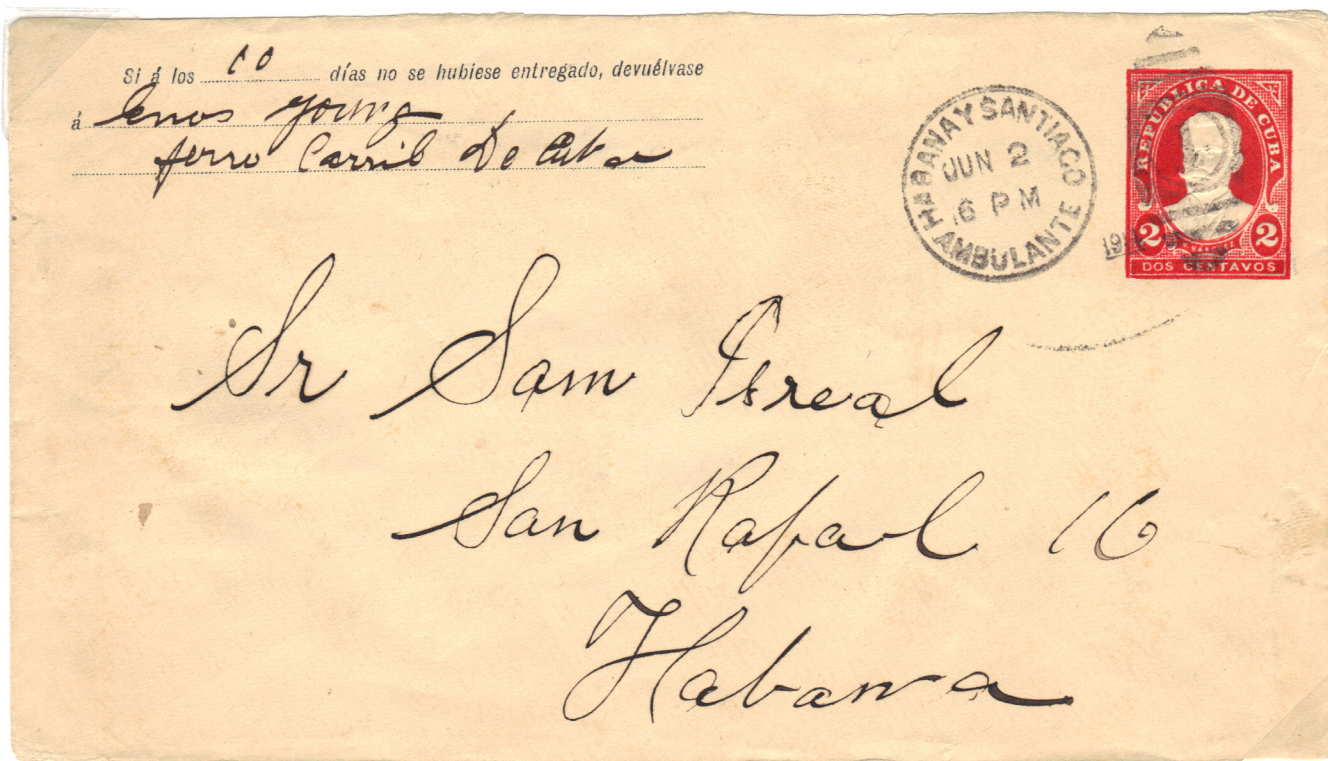 Si á los 10 días no se hubiese entregado, devuélvase
á Enos Young
ferro Carril De Cuba
HABANA Y SANTIAGO
JUN 2
6 PM
AMBULANTE
REPUBLICA DE CUBA
2 2
DOS CENTAVOS
Sr Sam Isreal
San Rafael 16
Habana